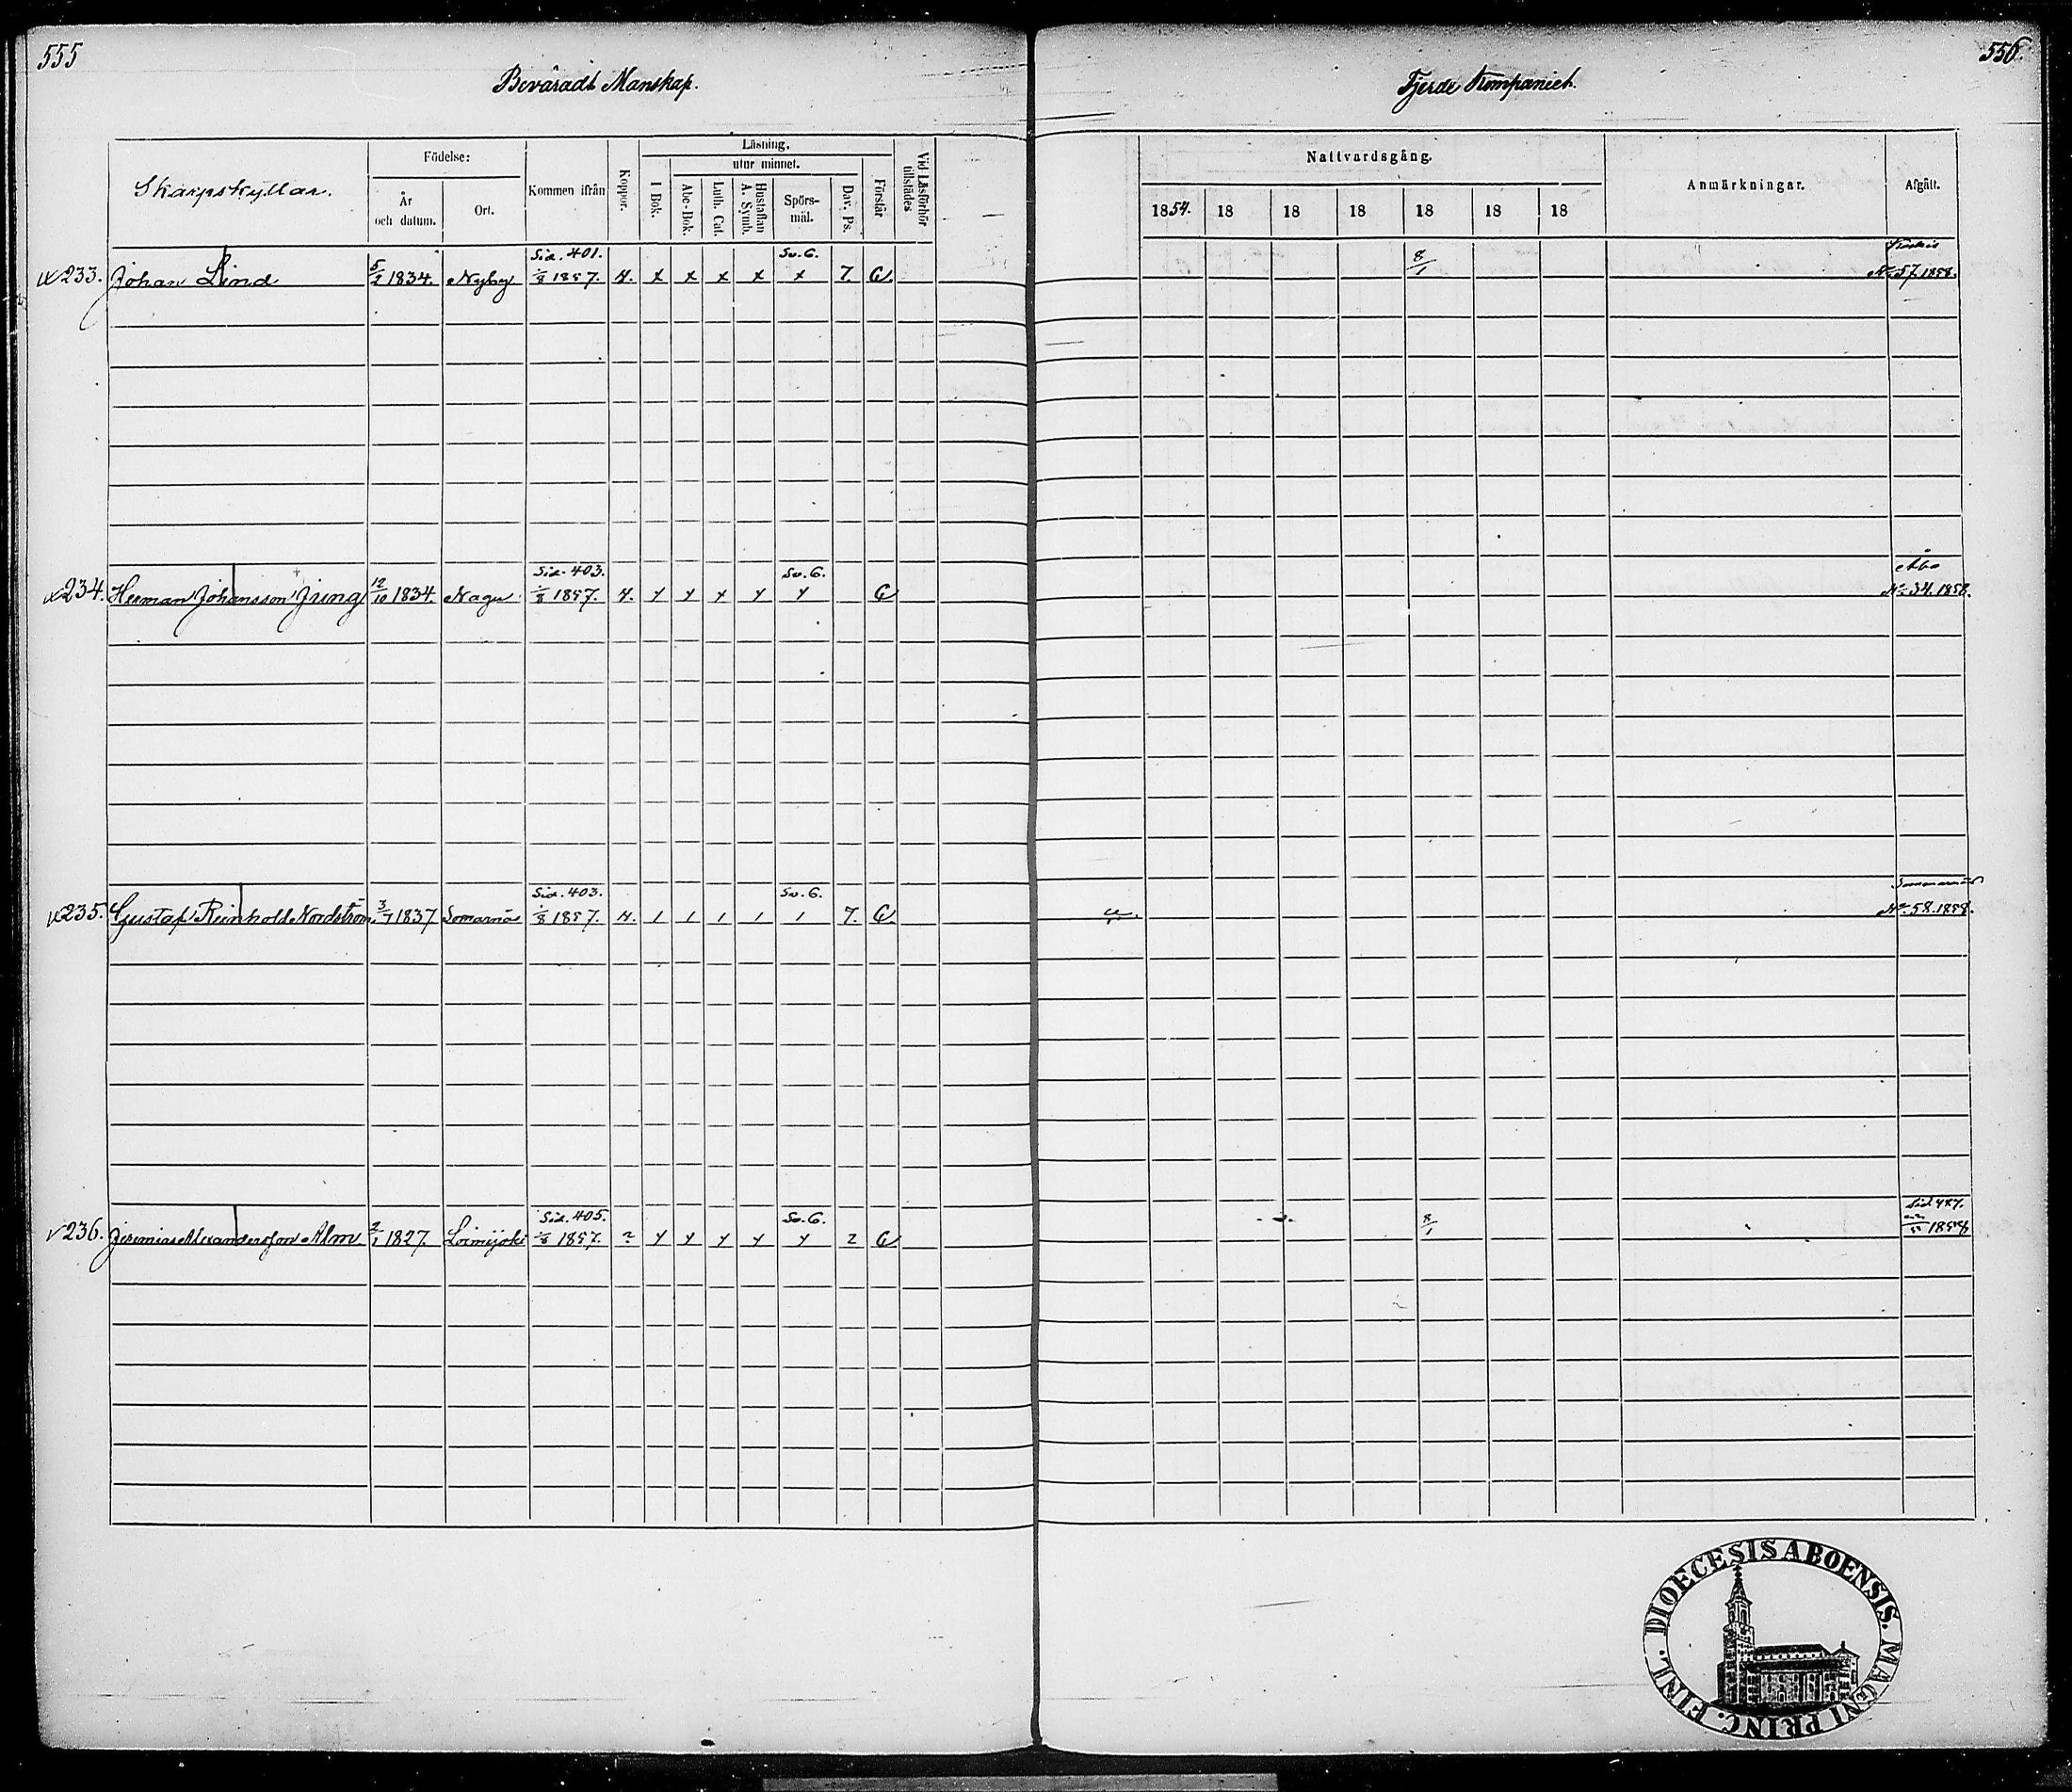 555
Beväradt Manskap.
Skarpskyttar.
Födelse:
År och datum.
Ort.
Kommen ifrån
Koppor.
Läsning.
utur minnet.
I Bok.
Abc-Bok.
Luth. Cat.
Hustaflan A. Symb.
Spörs-mål.
Dav. Ps.
Förstår
Vid Läsförhör tillstädes
Sid. 401. Sv. G.
233. Johan Lind 5/2 1834. Nyby 1/8 1857. H. x x x x x 7. G
Sid. 403. Sv. G.
234. Herman Johansson Jung 12/10 1834. Nagu 1/8 1857. H. x x x x x G
Sid. 403. Sv. G.
235. Gustaf Reinhold Nordström 3/7 1837 Somarnäs 1/8 1857. H. / / / / / 7. G
Sid. 405. Sv. G.
236. Jeremias Alexandersson Alm 2/1 1827. Loimijoki 1/8 1857. 2 x x x x x 2 G
556.
Fjerde Kompaniet.
Nattvardsgång.
Anmärkningar.
Afgått.
1854. 18 18 18 18 18 18
8/1 No 57. 1858.
Åbo
No 34. 1858.
No 58. 1858.
8/1 1858
DIOECESIS ABOENSIS. MAGNI PRINC. FINL.